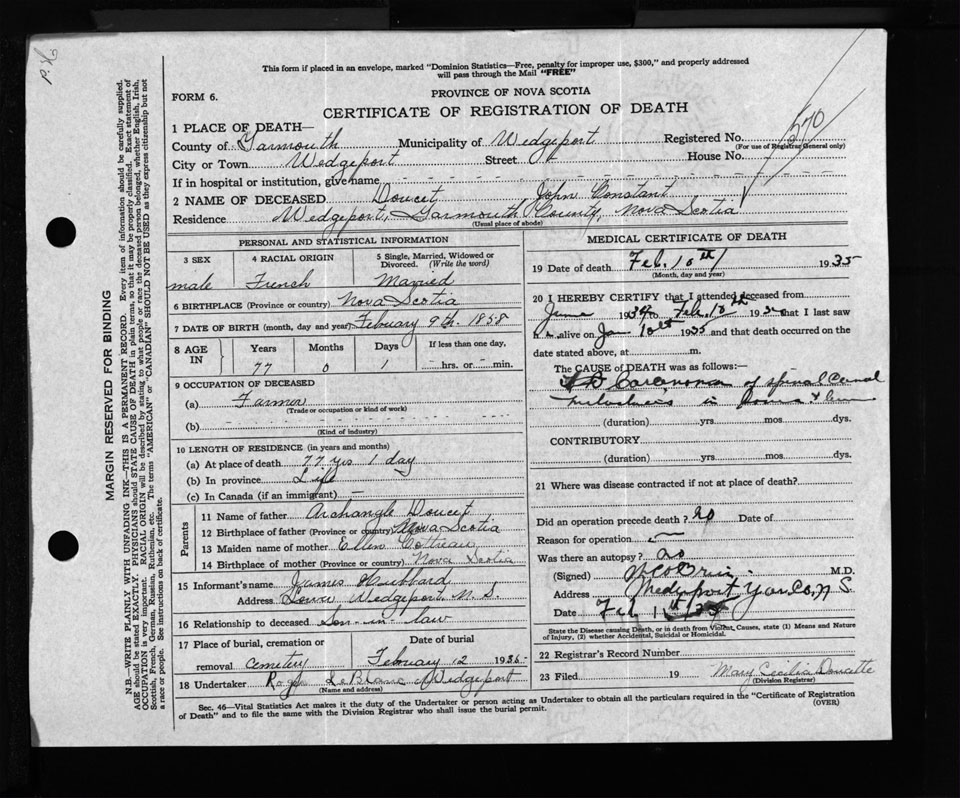 This form if placed in an envelope, marked "Dominion Statistics—Free, penalty for improper use, $300," and properly addressed
will pass through the Mail "FREE"
FORM 6.
PROVINCE OF NOVA SCOTIA
CERTIFICATE OF REGISTRATION OF DEATH
1 PLACE OF DEATH—
County of Yarmouth Municipality of Wedgeport Registered No. 570
(For use of Registrar General only)
City or Town Wedgeport Street House No.
If in hospital or institution, give name
2 NAME OF DECEASED Doucet John Constant
Residence Wedgeport, Yarmouth County, Nova Scotia
(Usual place of abode)
PERSONAL AND STATISTICAL INFORMATION
3 SEX 4 RACIAL ORIGIN 5 Single, Married, Widowed or Divorced. (Write the word)
male French Married
6 BIRTHPLACE (Province or country) Nova Scotia
7 DATE OF BIRTH (month, day and year) February 9th. 1858
8 AGE IN Years Months Days If less than one day,
77 0 1 hrs. or min.
9 OCCUPATION OF DECEASED
(a) Farmer
(Trade or occupation or kind of work)
(b)
(Kind of industry)
10 LENGTH OF RESIDENCE (in years and months)
(a) At place of death 77 yrs 1 day
(b) In province Life
(c) In Canada (if an immigrant) —
Parents
11 Name of father Archangle Doucet
12 Birthplace of father (Province or country) Nova Scotia
13 Maiden name of mother Ellen Cottreau
14 Birthplace of mother (Province or country) Nova Scotia
15 Informant's name James Hubbard
Address Lower Wedgeport, N. S.
16 Relationship to deceased Son-in-law
17 Place of burial, cremation or removal Date of burial
cemetery February 12 1935
18 Undertaker LeBlanc Wedgeport
(Name and address)
MEDICAL CERTIFICATE OF DEATH
19 Date of death Feb. 10th 1935
(Month, day and year)
20 I HEREBY CERTIFY that I attended deceased from
June 1934 to Feb. 10th 1935 that I last saw
h alive on Jan 10th 1935 and that death occurred on
date stated above, at m.
The CAUSE OF DEATH was as follows:—
Carcinoma of spinal
in
(duration) yrs. mos. dys.
CONTRIBUTORY
(duration) yrs. mos. dys.
21 Where was disease contracted if not at place of death?
Did an operation precede death? no Date of
Reason for operation
Was there an autopsy? no
(Signed) M.D.
Address Wedgeport Yar Co, N S.
Date Feb 11th 35
State the Disease causing Death, or in death from Violent, Causes, state (1) Means and Nature
of Injury, (2) whether Accidental, Suicidal or Homicidal.
22 Registrar's Record Number
23 Filed 19 Mary Cecilia Doucette
(Division or Registrar)
Sec. 46—Vital Statistics Act makes it the duty of the Undertaker or person acting as Undertaker to obtain all the particulars required in the "Certificate of Registration
of Death" and to file the same with the Division Registrar who shall issue the burial permit. (OVER)
MARGIN RESERVED FOR BINDING
N.B.—WRITE PLAINLY WITH UNFADING INK—THIS IS A PERMANENT RECORD. Every item of information should be carefully supplied.
AGE should be stated EXACTLY. PHYSICIANS should STATE CAUSE OF DEATH in plain terms, so that it may be properly classified. Exact statement of
OCCUPATION is very important. RACIAL ORIGIN will be described by stating to what people or race the deceased person belonged, whether English, Irish,
Scottish, French, German, Russian, Ruthenian, etc. The terms "AMERICAN" or "CANADIAN" SHOULD NOT BE USED as they express citizenship but not
a race or people. See instructions on back of certificate.